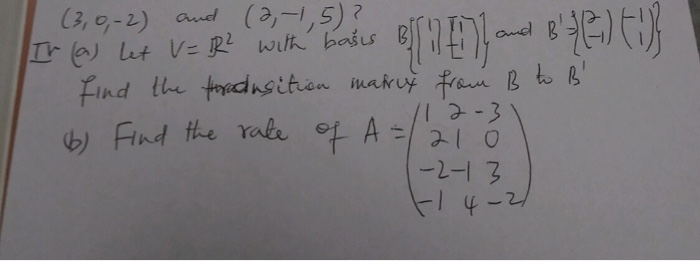 (3, 0, -2) and (2, -1, 5)?
IV (a) Let V = ℝ² with basis B and B'
Find the transition matrix from B to B'
(b) Find the rate of A = (1 2 -3
2 1 0
-2 -1 3
-1 4 -2)